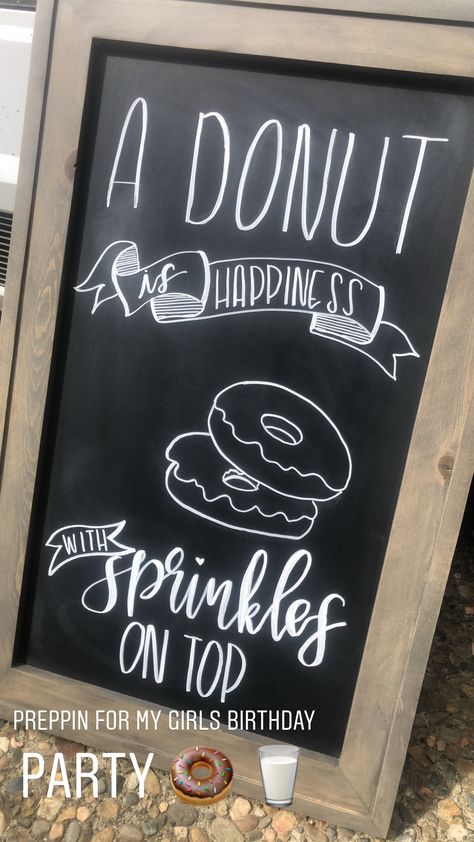 A DONUT
is HAPPINESS
WITH
sprinkles
ON TOP
PREPPIN FOR MY GIRLS BIRTHDAY
PARTY 🍩 🥛